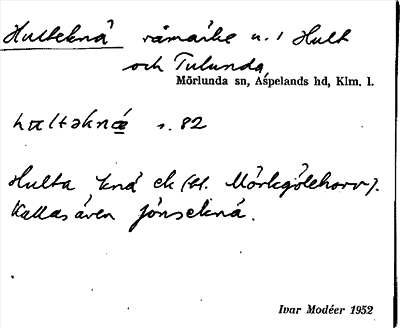 Hulteknä råmärke n. i Hult
och Tulunda,
Mörlunda sn, Aspelands hd, Klm. l.
hʉltəknæ s. 82
Hulta knä ek (
Mörkgölehorv).
Kallas även Jonseknä.
Ivar Modéer 1952